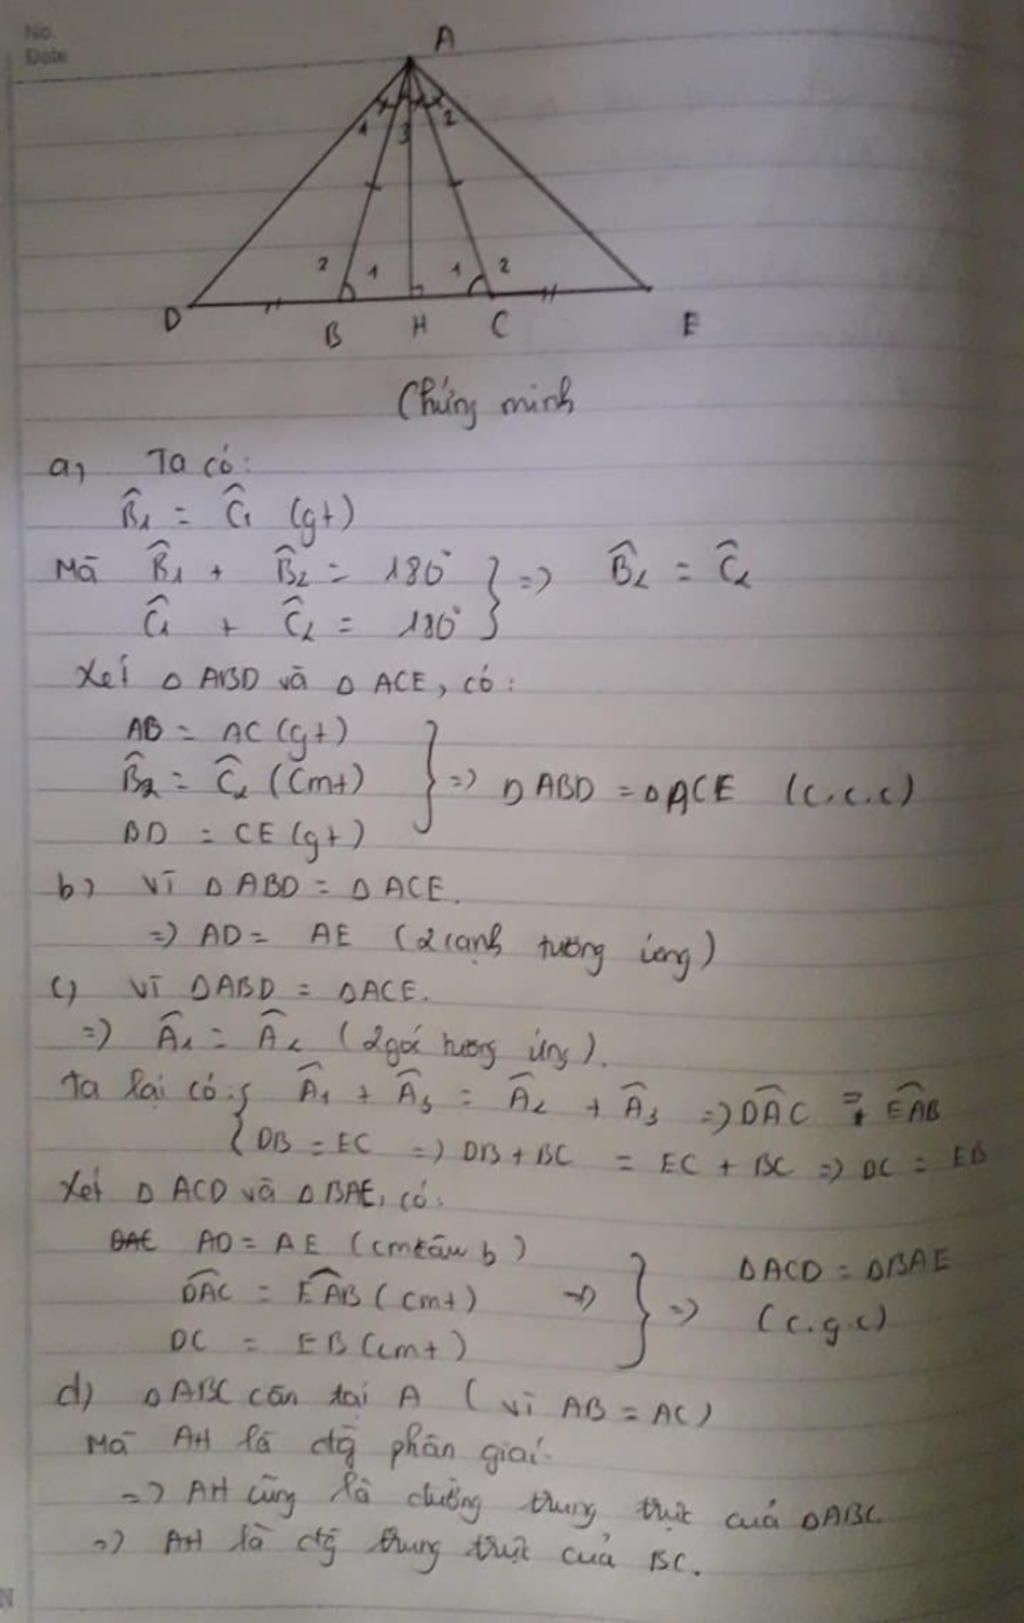 No.
Date
A
1 3 2
2 1 1 2
D B H C E
Chứng minh
a, Ta có:
B̂₁ = Ĉ₁ (gt)
Mà B̂₁ + B̂₂ = 180° } => B̂₂ = Ĉ₂
Ĉ₁ + Ĉ₂ = 180°
Xét Δ ABD và Δ ACE, có:
AB = AC (gt)
B̂₂ = Ĉ₂ (cmt) } => Δ ABD = Δ ACE (c.c.c)
BD = CE (gt)
b, Vì Δ ABD = Δ ACE.
=> AD = AE (2 cạnh tương ứng)
c, Vì ΔABD = ΔACE.
=> Â₁ = Â₂ (2 góc tương ứng).
Ta lại có: { Â₁ + Â₃ = Â₂ + Â₃ => DÂC = EÂB
DB = EC => DB + BC = EC + BC => DC = EB
Xét Δ ACD và Δ BAE, có:
AD = AE (cm câu b)
DÂC = EÂB (cmt) => } => ΔACD = ΔBAE
DC = EB (cmt) (c.g.c)
d, ΔABC cân tại A (vì AB = AC)
Mà AH là đg phân giác.
=> AH cũng là đường trung trực của ΔABC
=> AH là đg trung trực của BC.